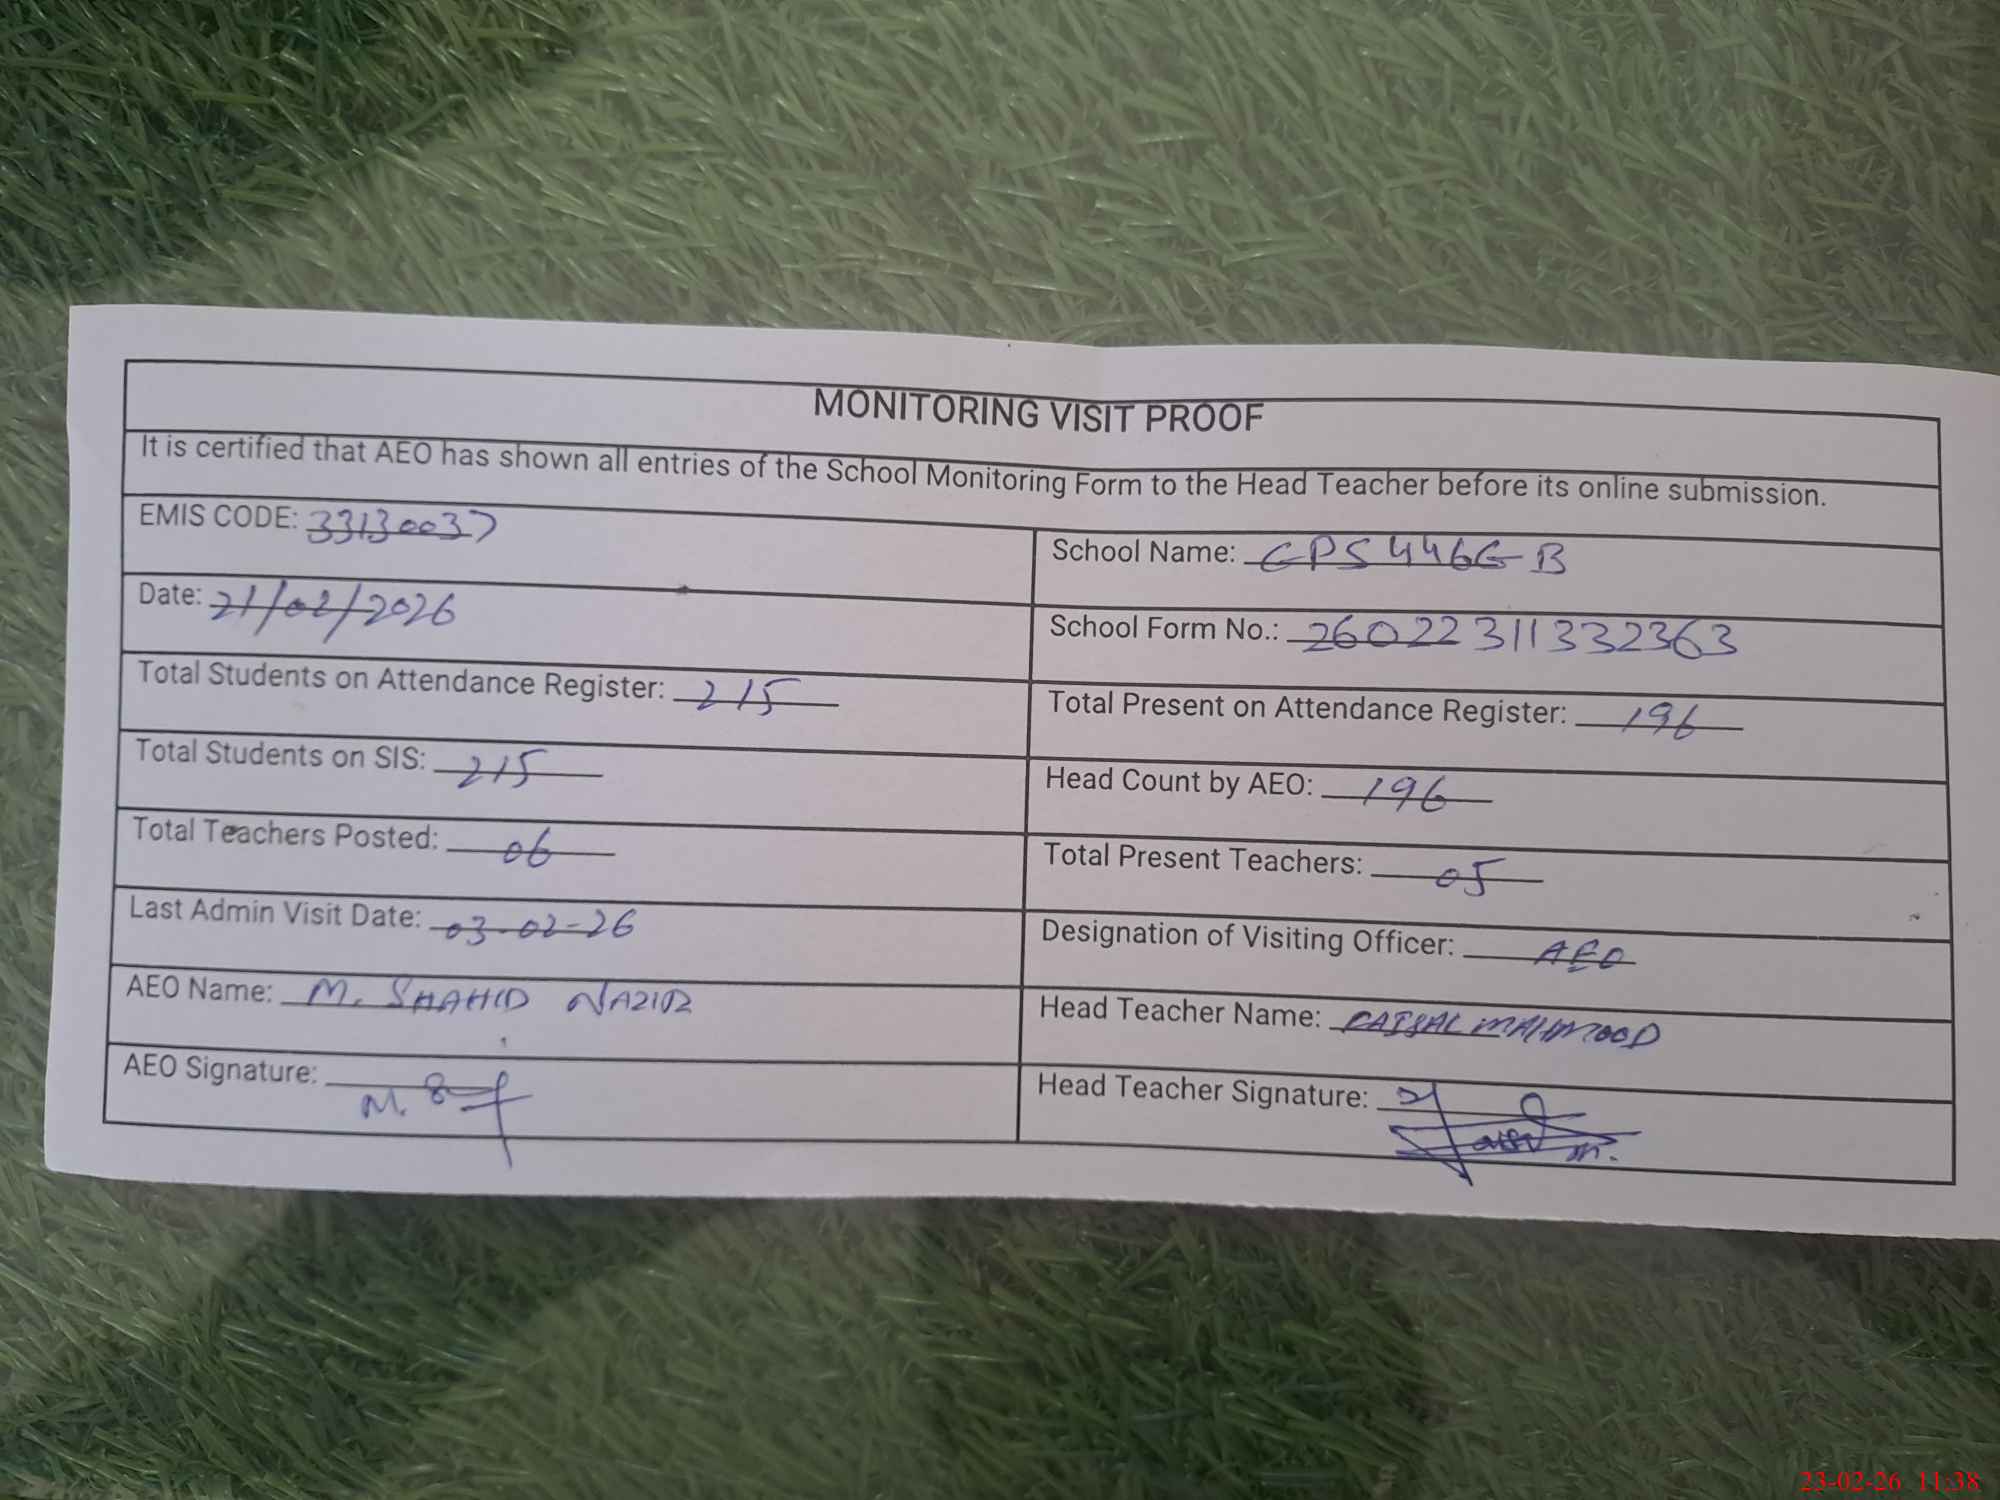 MONITORING VISIT PROOF
It is certified that AEO has shown all entries of the School Monitoring Form to the Head Teacher before its online submission.
EMIS CODE: 33130037
School Name: GPS 446G-B
Date: 21/02/2026
School Form No.: 26022311332363
Total Students on Attendance Register: 215
Total Present on Attendance Register: 196
Total Students on SIS: 215
Head Count by AEO: 196
Total Teachers Posted: 06
Total Present Teachers: 05
Last Admin Visit Date: 03-02-26
Designation of Visiting Officer: AEO
AEO Name: M. SHAHID NAZIR
Head Teacher Name: FAISAL MAHMOOD
AEO Signature: M.
Head Teacher Signature:
23-02-26 11:38